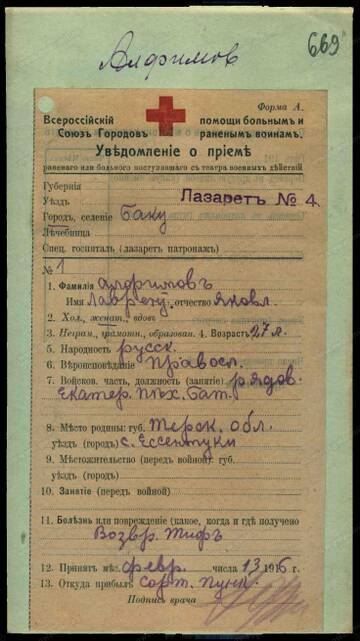 669
Алфимовъ
Форма А.
Всероссійскій помощи больнымъ и
Союзъ Городовъ раненымъ воинамъ.
Увѣдомленіе о пріемѣ
раненаго или больного поступившаго съ театра военныхъ дѣйствій
Губернія
Уѣздъ Лазаретъ № 4.
Городъ, селеніе Баку
Лѣчебница
Спец. госпиталь (лазаретъ патронажъ)
№ 1
1. Фамилія Алфимовъ
Имя Лаврент. отчество Яковл.
2. Хол., женат., вдовъ
3. Неграм., грамотн., образован. 4. Возрастъ 27 л.
5. Народность русск.
6. Вѣроисповѣданіе Правосл.
7. Войсков. часть, должность (занятіе) рядов.
Екатер. пѣх. бат.
8. Мѣсто родины: губ. Терск. обл.
уѣздъ (городъ) с. Ессентуки
9. Мѣстожительство (передъ войной) губ.
уѣздъ (городъ)
10. Занятіе (передъ войной)
11. Болѣзнь или поврежденіе (какое, когда и гдѣ получено
Возвр. тифъ
12. Принятъ мѣс. февр. числа 13 1916 г.
13. Откуда прибылъ сорт. пунк.
Подпись врача